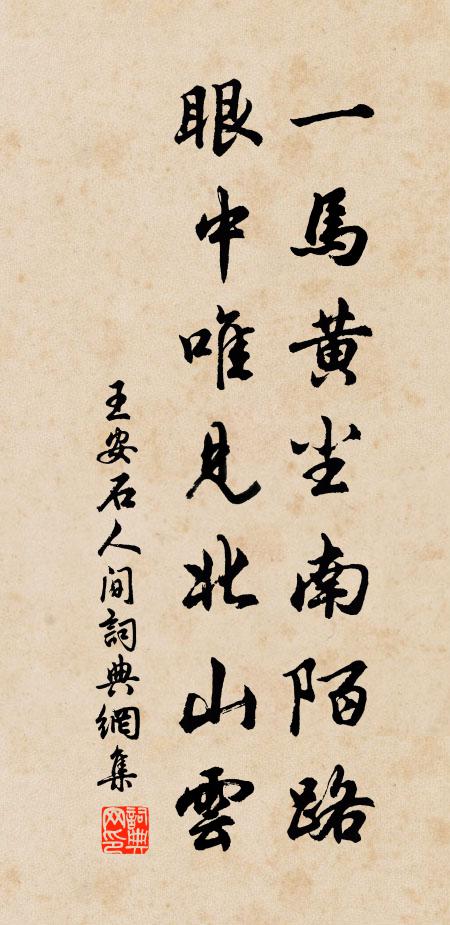 一馬黄尘南陌路
眼中唯見北山雲
王安石人间詞典網集
詞典网印